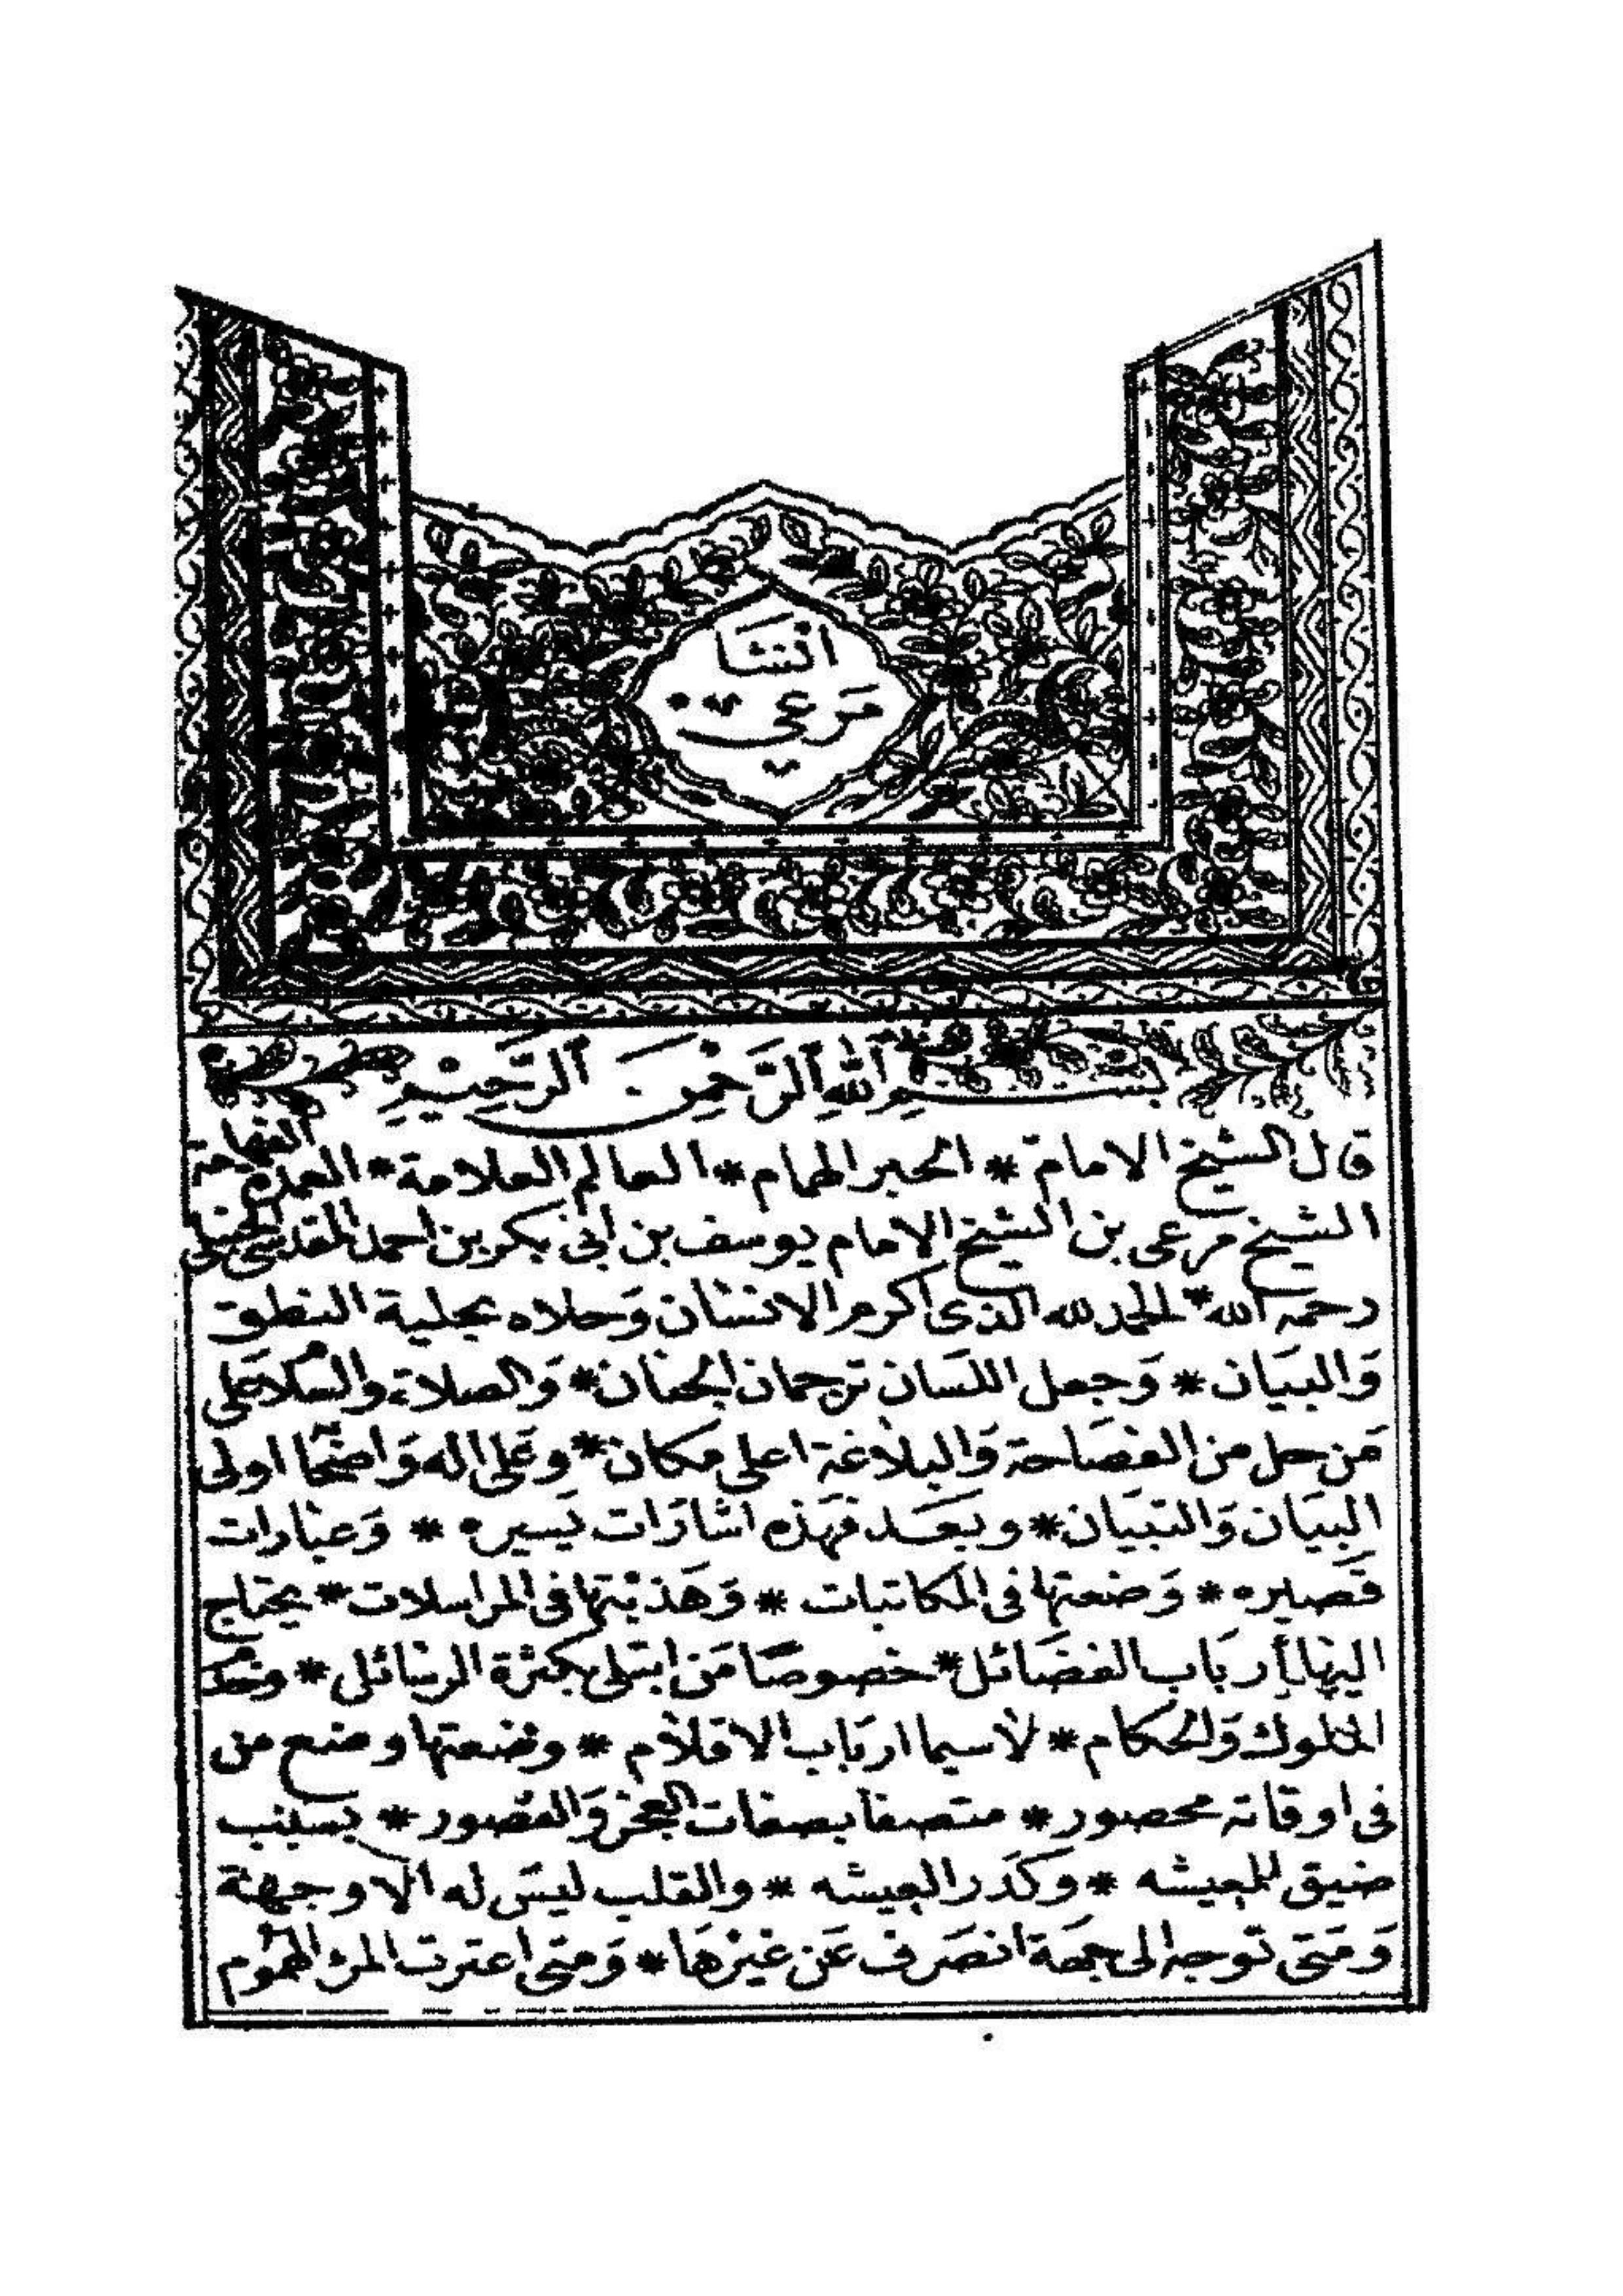 انشا
مرعي
بسم الله الرحمن الرحيم
قال الشيخ الامام * الحبر الهمام * العالم العلامة * العمدة الفهامة
الشيخ مرعى بن الشيخ الامام يوسف بن ابى بكر بن احمد المقدسى الحنبلى
رحمه الله * الحمد لله الذى اكرم الانسان وَحلاه بحلية النطق
وَالبيَان * وَجعل اللسَان ترجمان الجنان * وَالصلاة والسلام على
مَن حل من الفصَاحة وَالبلاغة اعلى مكان * وعَلى اله وَاصحابه اولى
البيَان وَالتبيَان * وبعَد فهَذه اشارَات يَسيره * وَعبارات
قَصيره * وَضعتها فى المكاتبات * وَهَذبتها فى المراسلات * يحتاج
اليها أربَاب الفضَائل * خصوصًا مَن ابتلى بكثرة الرسَائل *
الملوك وَالحكام * لاسيما اربَاب الاقلام * وضعتها وضع من
فى اوقاته محصور * متصفا بصفات العجز وَالقصور * بسبب
ضيق المعيشه * وكدَر العيشه * والقلب ليسَ له الا وجهة
وَمَتى توجه الى جهَة انصَرف عَن غيرهَا * وَمتى اعترت المرء الهموم